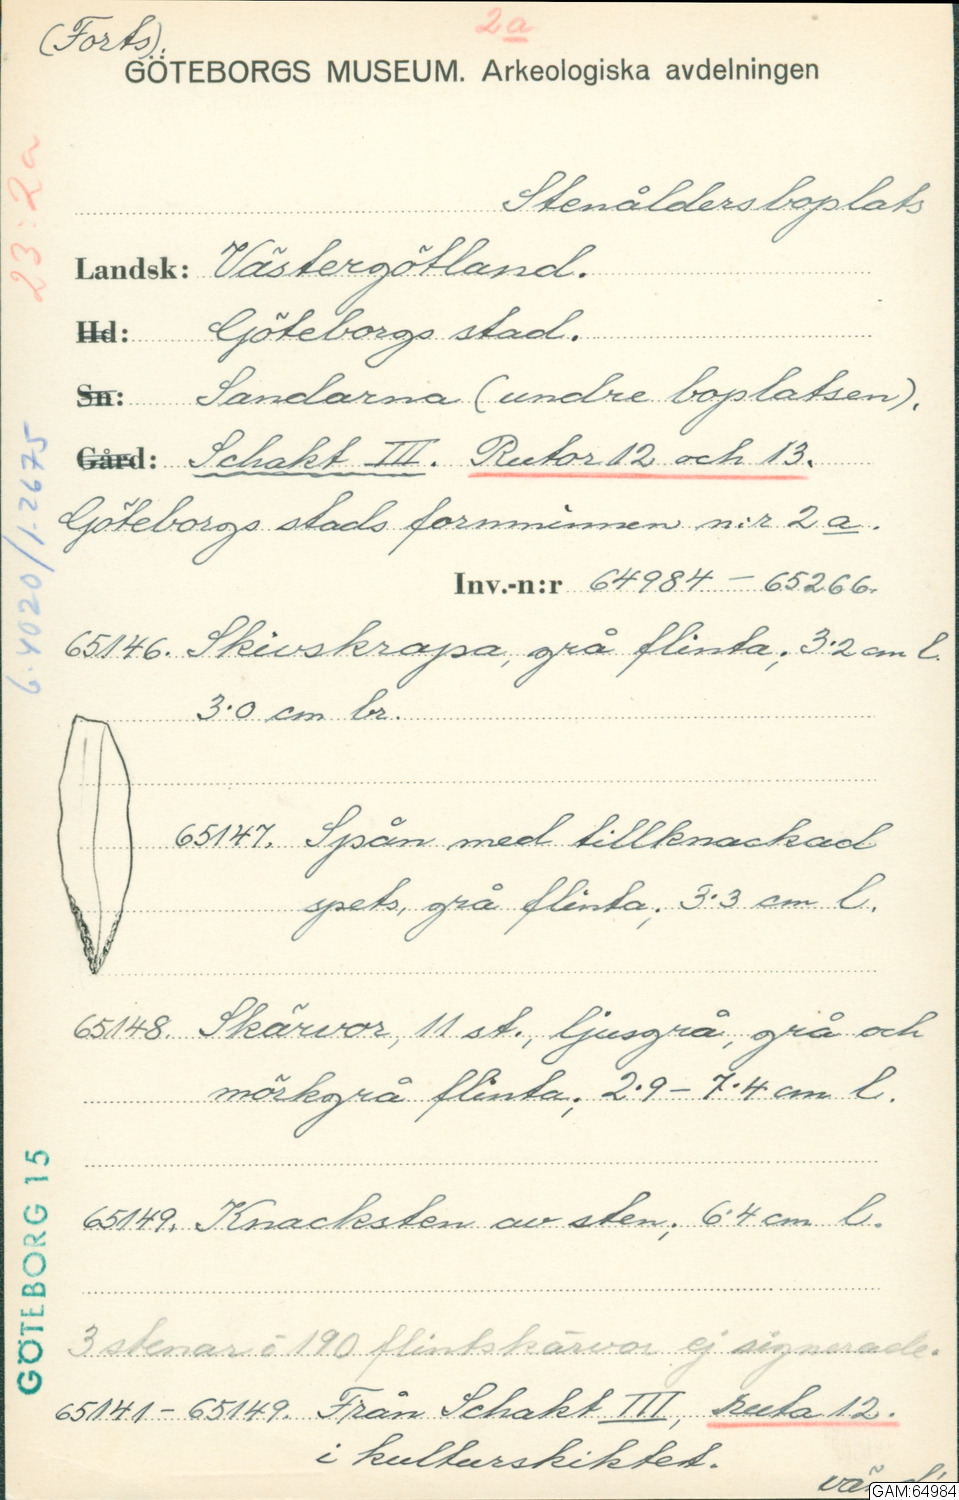 (Forts).
2a
GÖTEBORGS MUSEUM. Arkeologiska avdelningen
23:2a
Stenåldersboplats
Landsk: Västergötland.
Hd: Göteborgs stad.
Sn: Sandarna (undre boplatsen).
Gård: Schakt III. Rutor 12 och 13.
Göteborgs stads fornminnen n:r 2 a.
6.4020/1.2675
Inv.-n:r 64984 – 65266.
65146. Skivskrapa, grå flinta; 3·2 cm l.
3·0 cm br.
65147. Spån med tillknackad
spets, grå flinta; 3·3 cm l.
65148. Skärvor, 11 st., ljusgrå, grå och
mörkgrå flinta; 2·9 – 7·4 cm l.
65149. Knacksten av sten; 6·4 cm l.
GÖTEBORG 15
3 stenar o 190 flintskärvor ej signerade.
65141 – 65149. Från Schakt III, Ruta 12.
i kulturskiktet.
GAM:64984